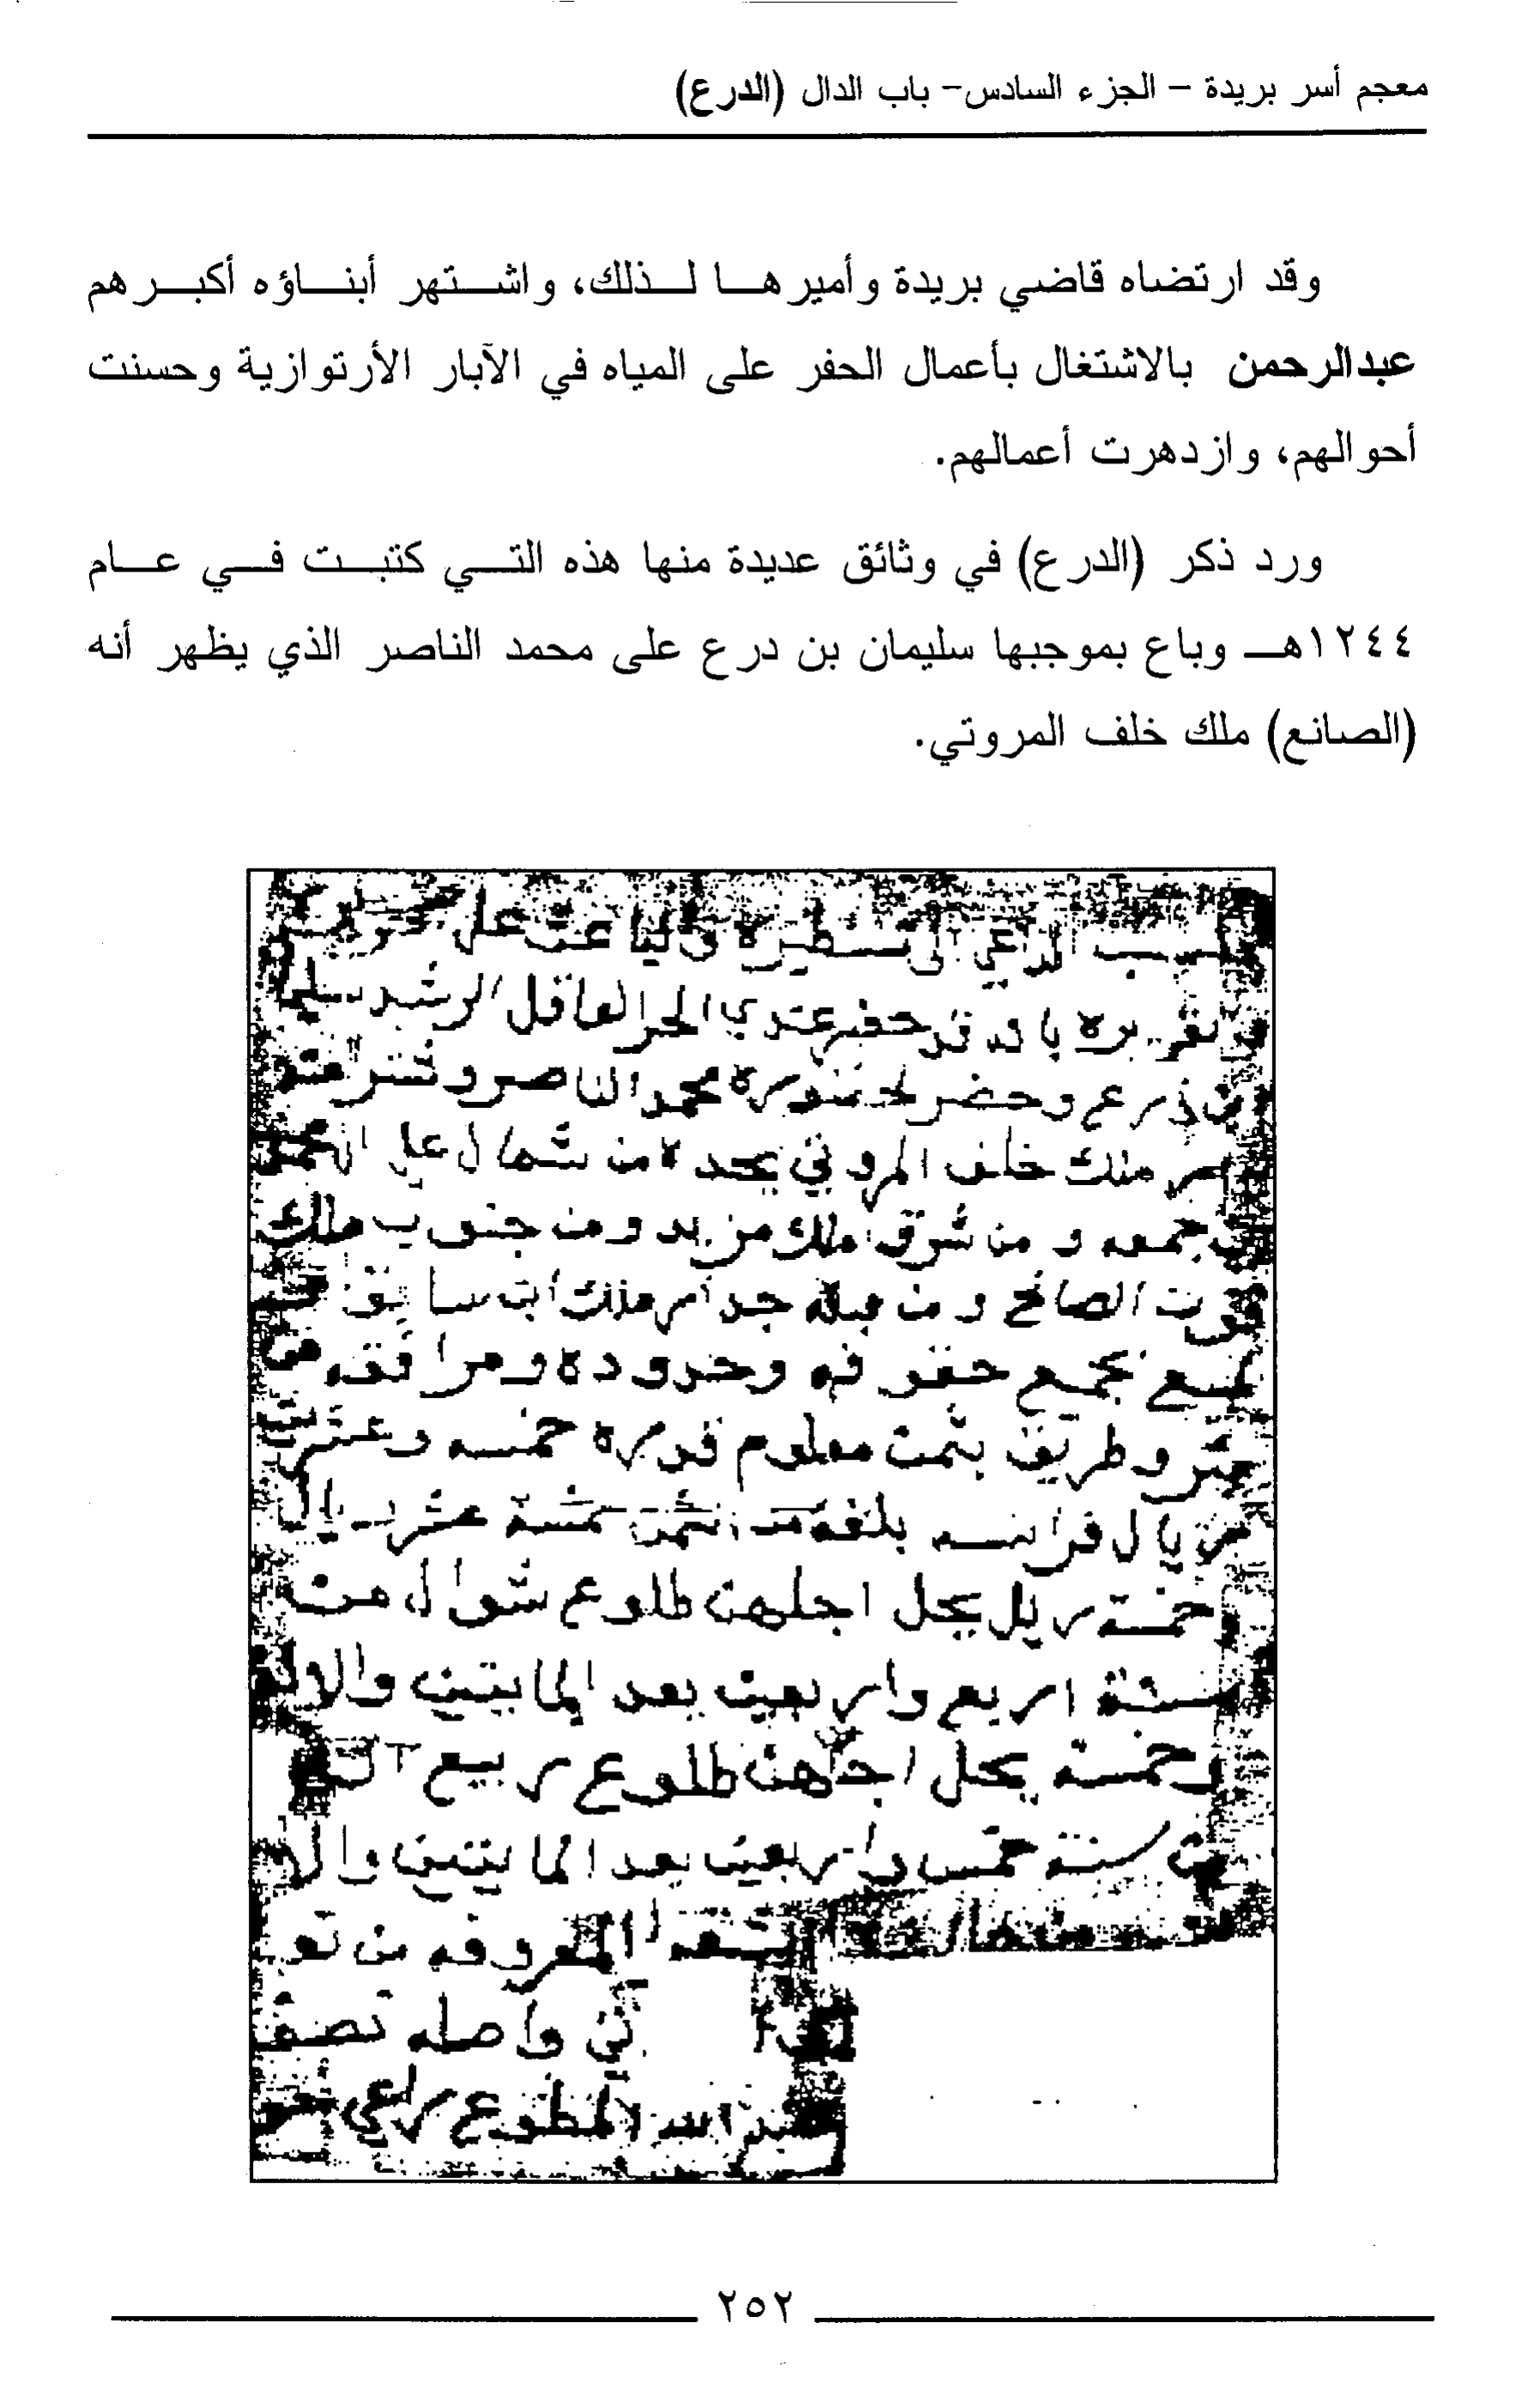 معجم أسر بريدة – الجزء السادس– باب الدال (الدرع)
وقد ارتضاه قاضي بريدة وأميرها لذلك، واشتهر أبناؤه أكبرهم
عبدالرحمن بالاشتغال بأعمال الحفر على المياه في الآبار الأرتوازية وحسنت
أحوالهم، وازدهرت أعمالهم.
ورد ذكر (الدرع) في وثائق عديدة منها هذه التي كتبت في عام
١٢٤٤هـ وباع بموجبها سليمان بن درع على محمد الناصر الذي يظهر أنه
(الصانع) ملك خلف المروتي.
الداعي الى تسطيره والباعث على
بانه قد حضر عندي الحر العاقل الرشيد
درع وحضر لحضوره محمد الناصر
ملك خلف المروتي يحده من شمال
جمعه و من شرق ملك مزيد ومن جنوب ملك
الصانع و من قبله جدار ملك ابن سابق
بجميع حقوقه وحدوده ومرافقه من
وطريق بثمن معلوم قدره خمسه وعشرين
ريال فرانسه بلغه من الثمن خمسة عشر
وخمسة ريال يحل اجلهن طلوع شوال من
سنة اربع واربعين بعد المايتين والالف
وخمسة يحل اجلهن طلوع ربيع
من سنة خمس واربعين بعد المايتين والالف
المعروفه من
واصله نصف